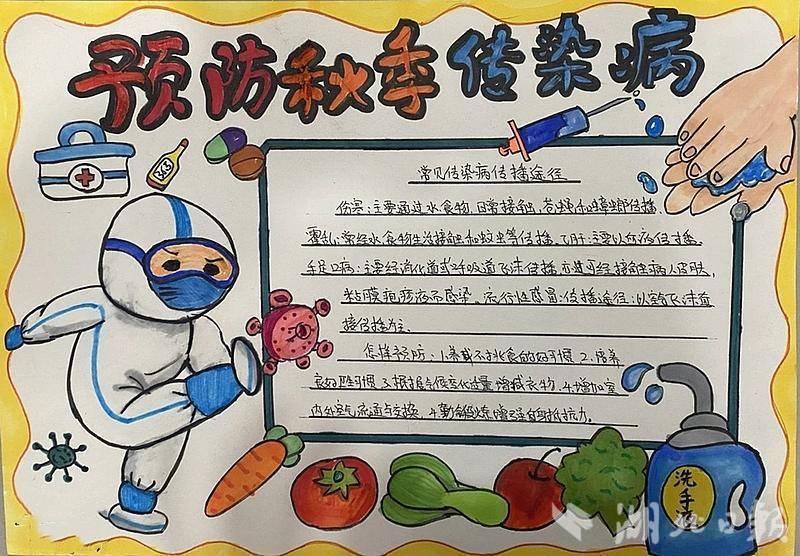 预防秋季传染病
常见传染病传播途径
伤寒:主要通过水食物,日常接触,苍蝇和蟑螂传播、
霍乱:常经水食物生活接触和蚊虫等传播。乙肝:主要以血液传播。
手足口病:主要经消化道或呼吸道飞沫传播,亦可经接触病人皮肤,
粘膜疱疹液而感染。流行性感冒:传播途径:以空气飞沫直
接传播为主.
怎样预防:1.养成不挑食的好习惯 2.培养
良好卫生习惯 3.根据气候变化适量增减衣物. 4.增加室
内外空气流通与交换, 4.勤锻炼,增强自身抵抗力.
洗手液
湖北日报